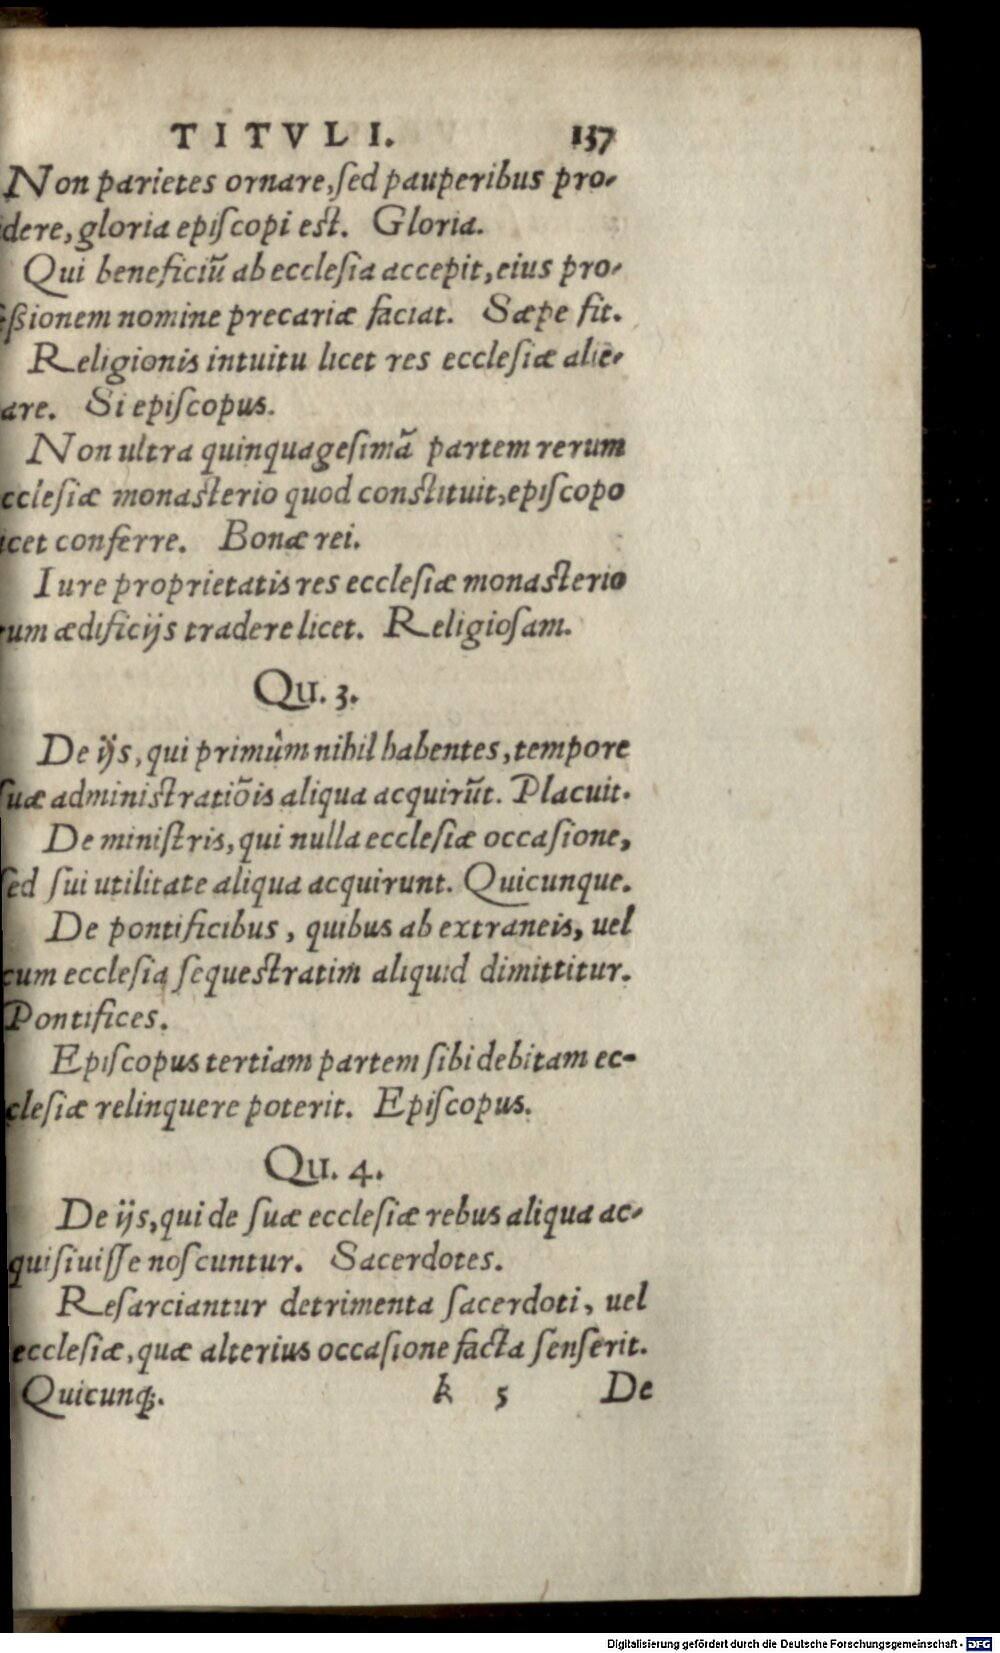 TITVLI. 137
Non parietes ornare, ſed pauperibus pro-
dere, gloria epiſcopi eſt. Gloria.
Qui beneficiũ ab eccleſia accepit, eius pro-
eßionem nomine precariæ faciat. Sæpe fit.
Religionis intuitu licet res eccleſiæ alie-
are. Si epiſcopus.
Non ultra quinquageſimã partem rerum
ccleſiæ monaſterio quod conſtituit, epiſcopo
icet conferre. Bonæ rei.
Iure proprietatis res eccleſiæ monaſterio
rum ædificijs tradere licet. Religioſam.
Qu. 3.
De ijs, qui primùm nihil habentes, tempore
ſuæ adminiſtratiõis aliqua acquirũt. Placuit.
De miniſtris, qui nulla eccleſiæ occaſione,
ſed ſui utilitate aliqua acquirunt. Quicunque.
De pontificibus, quibus ab extraneis, uel
cum eccleſia ſequeſtratim aliquid dimittitur.
Pontifices.
Epiſcopus tertiam partem ſibi debitam ec-
cleſiæ relinquere poterit. Epiſcopus.
Qu. 4.
De ijs, qui de ſuæ eccleſiæ rebus aliqua ac-
quiſiuiſſe noſcuntur. Sacerdotes.
Reſarciantur detrimenta ſacerdoti, uel
eccleſiæ, quæ alterius occaſione facta ſenſerit.
Quicunq;. k 5 De
Digitalisierung gefördert durch die Deutsche Forschungsgemeinschaft - DFG